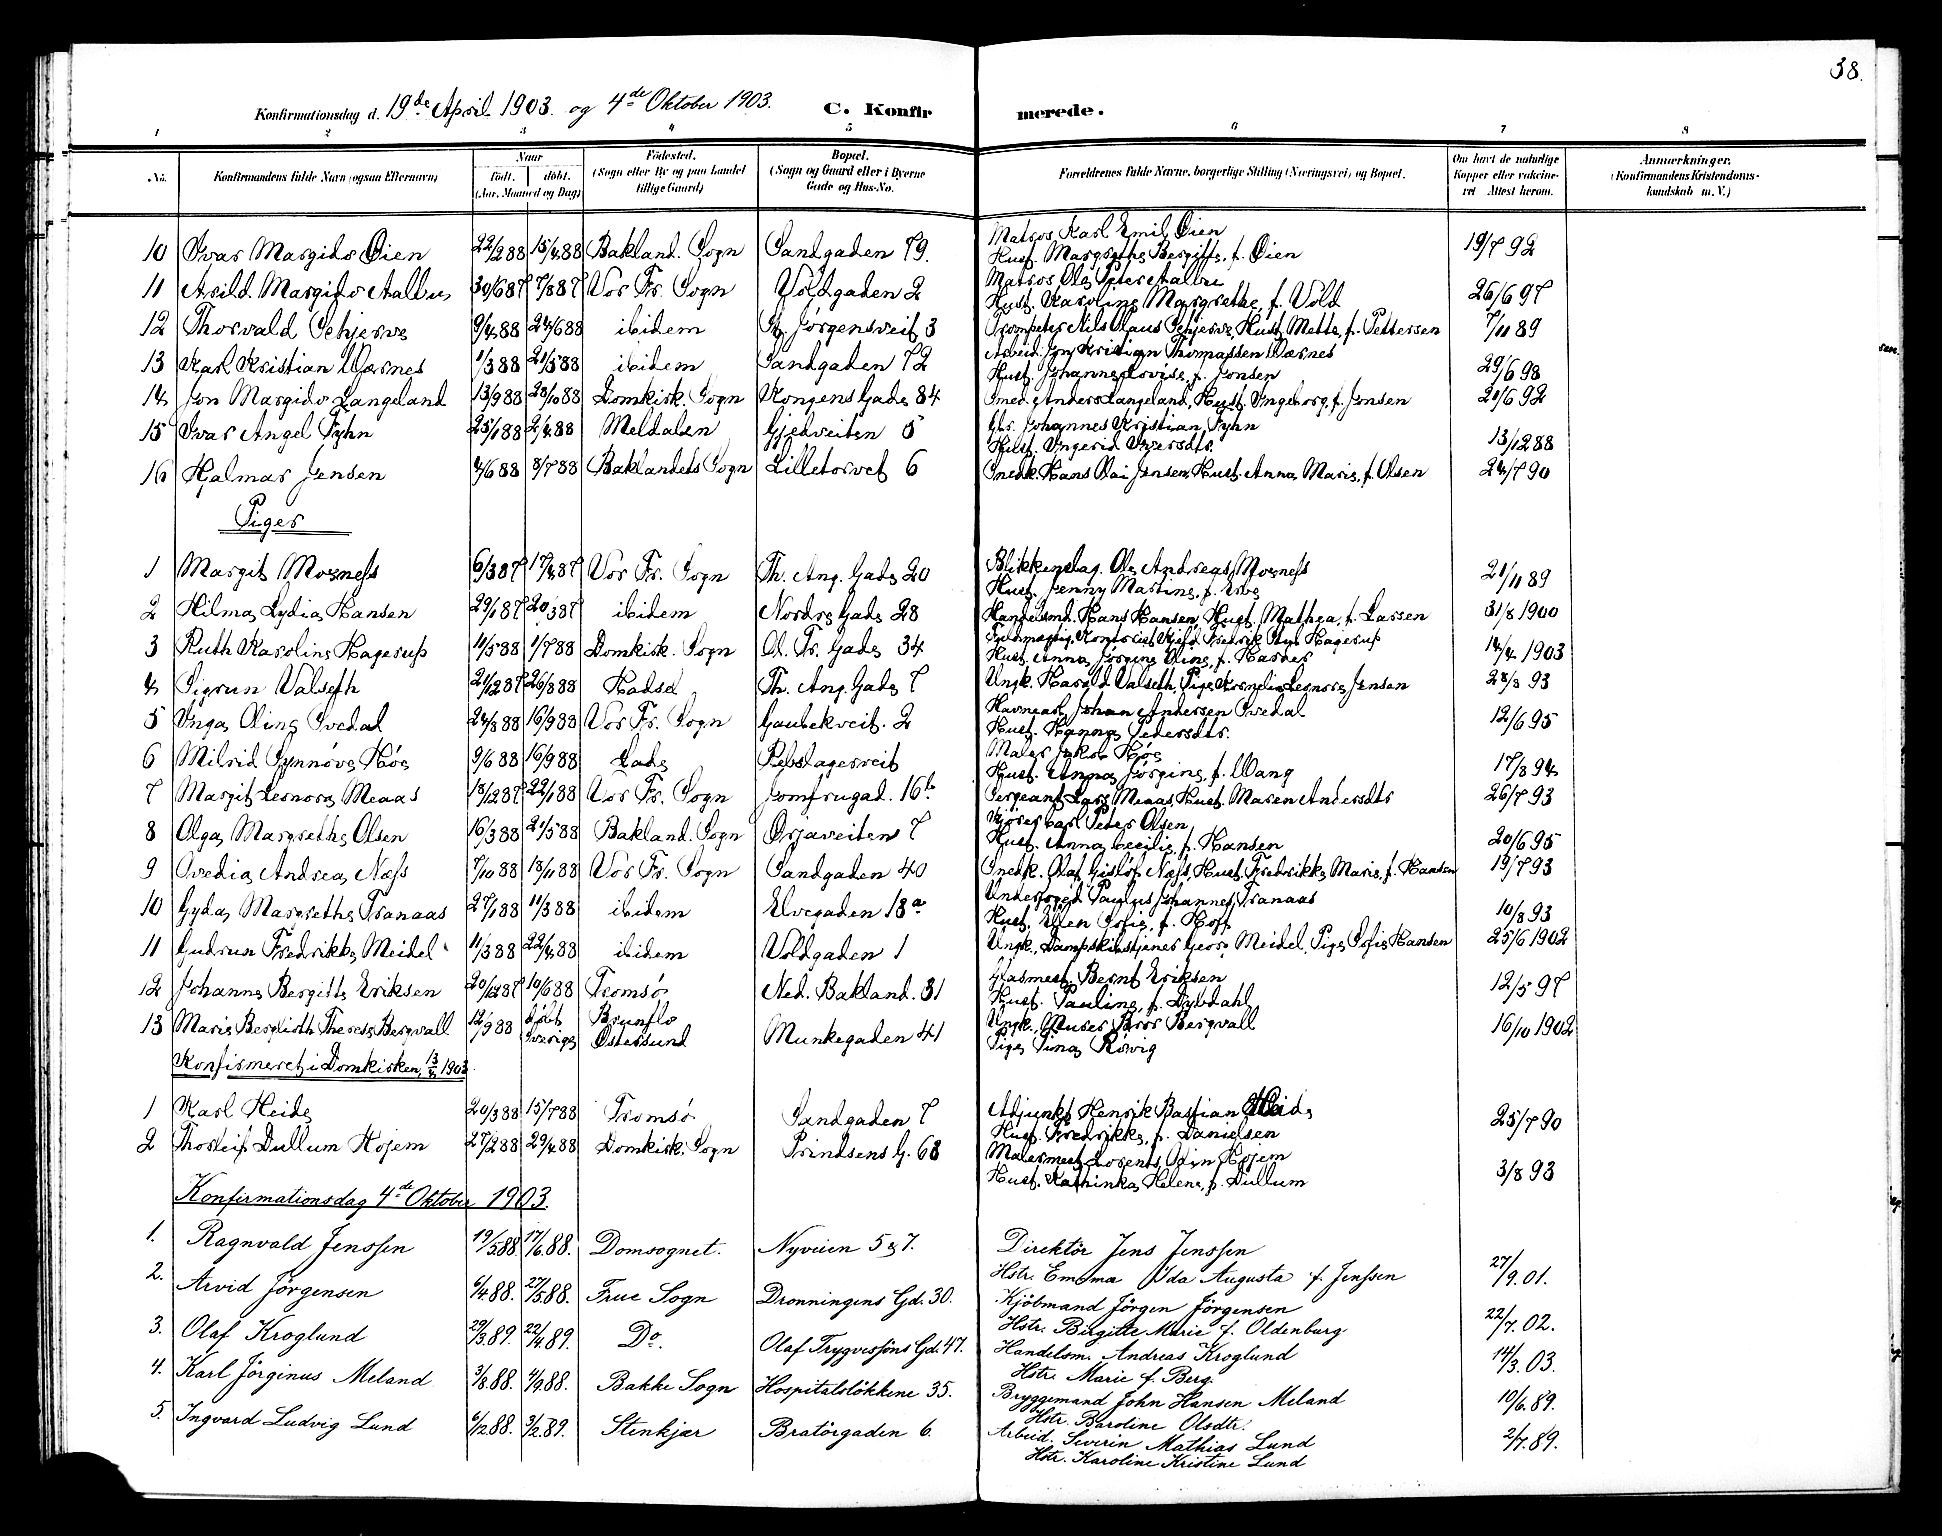 38.
Konfirmationsdag d. 19de April 1903. og 4de Oktober 1903. C. Konfirmerede.
1 2 3 4 5 6 7 8
No. Konfirmandens fulde Navn (ogsaa Efternavn) Naar født. døbt. (Aar, Maaned og Dag) Fødested. (Sogn eller By og paa Landet tillige Gaard) Bopæl. (Sogn og Gaard eller i Byerne Gade og Hus-No. Forældrenes fulde Navne, borgerlige Stilling (Næringsvei) og Bopæl. Om havt de naturlige Kopper eller vakcineret Attest herom. Anmærkninger. (Konfirmandens Kristendomskundskab m. V.)
10 Ivar Margido Øien 22/2 88 15/4 88 Bakland. Sogn Sandgaden 79. Matros Karl Emil Øien Hust. Margrethe Bergitte, f. Øien 19/7 92
11 Arild Margido Aalbu 30/6 87 7/8 87 Vor Fr. Sogn Voldgaden 2 Matros Ole Peter Aalbu Hust. Karoline Margrethe, f. Vold 26/6 97
12 Thorvald Schjerve 9/4 88 24/6 88 ibidem St. Jørgensveit 3 Trompeter Nils Olaus Schjerve, Hust. Mette, f. Pettersen 7/11 89
13 Karl Kristian Værnes 1/3 88 21/5 88 ibidem Sandgaden 72 Arbeid. Jon Kristian Thomassen Værnes Hust. Johanne Lovise, f. Jonsen 29/6 98
14 Jon Margido Langeland 13/9 88 28/10 88 Domkirk. Sogn Kongens Gade 84 Smed. Anders Langeland, Hust. Ingeborg, f. Jensen 21/6 92
15 Ivar Angel Fyhn 25/1 88 2/4 88 Meldalen Gjedveiten 5 Gbr. Johannes Kristian Fyhn Hust. Ingerid Iversdtr. 13/12 88
16 Hjalmar Jensen 4/6 88 8/7 88 Baklandets Sogn Lilletorvet 6 Snedk. Hans Kai Jensen, Hust. Anna Marie, f. Olsen 24/7 90
Piger
1 Margit Mosness 6/3 87 17/4 87 Vor Fr. Sogn Th. Ang. Gade 20 Blikkenslag. Ole Andreas Mosness Hust. Jenny Martine, f. 21/11 89
2 Hilma Lydia Hansen 29/1 87 20/3 87 ibidem Nordre Gade 28 Handelsmd. Hans Hansen, Hust. Mathea, f. Larsen 31/8 1900
3 Ruth Karoline Hagerup 11/5 88 1/7 88 Domkirk. Sogn Ol. Tr. Gade 34 Fuldmægtig, Fredrik Hagerup Hust. Anna Jørgine Oline, f. 14/4 1903
4 Sigrun Valseth 21/12 87 26/8 88 Hadsel Th. Ang. Gade 7 Ungk. Harald Valseth, Pige Kornelia Leonora Jensen 28/8 93
5 Inga Oline Svedal 24/3 88 16/9 88 Vor Fr. Sogn Gaubekveit. 2 Havnearb. Johan Andersen Svedal Hust. Hanna Pedersdtr. 12/6 95
6 Milrid Synnøve Høe 9/6 88 16/9 88 Lade Rebslagerveit Maler Jakob Høe Hust. Anna Jørgine, f. Wang 17/8 94
7 Margit Leonora Meaas 18/12 87 22/1 88 Vor Fr. Sogn Jomfrugad. 16b Sergeant Lars Meaas, Hust. Maren Andersdtr 26/7 93
8 Olga Margrethe Olsen 16/3 88 21/5 88 Bakland. Sogn Ørjaveiten 7 Kjører Carl Peter Olsen Hust. Anna Cecilie, f. Hansen 20/6 95
9 Ovedia Andrea Næss 7/10 88 18/11 88 Vor Fr. Sogn Sandgaden 40 Snedk. Olaf Gisløf Næss, Hust. Fredrikke Marie, f. Hansen 19/7 93
10 Gyda Margrethe Tranaas 27/1 88 11/3 88 ibidem Elvegaden 18a Underfoged Paulus Johannes Tranaas Hust. Ellen Sofie, f. Hoff 10/8 93
11 Gudrun Fredrikke Meidel 11/3 88 22/4 88 ibidem Voldgaden 1 Ungk. Dampskibstjener Georg Meidel, Pige Sofie Hansen 25/6 1902
12 Johanne Bergitte Eriksen 20/12 87 10/6 88 Tromsø Ned. Bakland. 31 Glasmest. Bernt Eriksen Hust. Pauline, f. Dybdahl 12/5 97
13 Marie Berglioth Therese Bergvall 12/9 88 døbt Sverige Brunflo Østersund Munkegaden 41 Ungk., Murer Bror Bergvall Pige Tina Røwig 16/10 1902
Konfirmeret i Domkirken, 13/4 1903.
1 Karl Heide 20/3 88 15/7 88 Tromsø Sandgaden 7 Adjunkt Henrik Bastian Heide Hust. Fredrikke, f. Danielsen 25/7 90
2 Thorleif Dullum Hojem 27/2 88 29/4 88 Domkirk. Sogn Prindsens G. 63 Malermest. Lorents Odin Hojem Hust. Kathinka Helene, f. Dullum 3/8 93
Konfirmationsdag 4de Oktober 1903.
1. Ragnvald Jenssen 19/5 88. 17/6. 88. Domsognet. Nyveien 5 & 7. Direktör Jens Jenssen Hstr. Emma Ida Augusta f. Jenssen 27/9. 01.
2. Arvid Jörgensen 6/4. 88. 27/5. 88. Frue Sogn Dronningens Gd. 30. Kjöbmand Jörgen Jörgensen Hstr. Birgitte Marie f. Oldenburg 22/7. 02.
3. Olaf Kroglund 29/3. 89. 22/4. 89. Do. Olaf Trygvessöns Gd. 47. Handelsm. Andreas Kroglund Hstr. Marie f. Berg. 14/3. 03.
4. Karl Jörginus Meland 3/8. 88. 4/9. 88. Bakke Sogn Hospitalslökkene 35. Bryggemand John Hansen Meland Hstr. Baroline Olsdtr. 10/6. 89.
5. Ingvard Ludvig Lund 6/12 88. 3/2. 89. Stenkjær Bratörgaden 6. Arbeid. Severin Mathias Lund Hstr. Karoline Kristine Lund 2/7. 89.